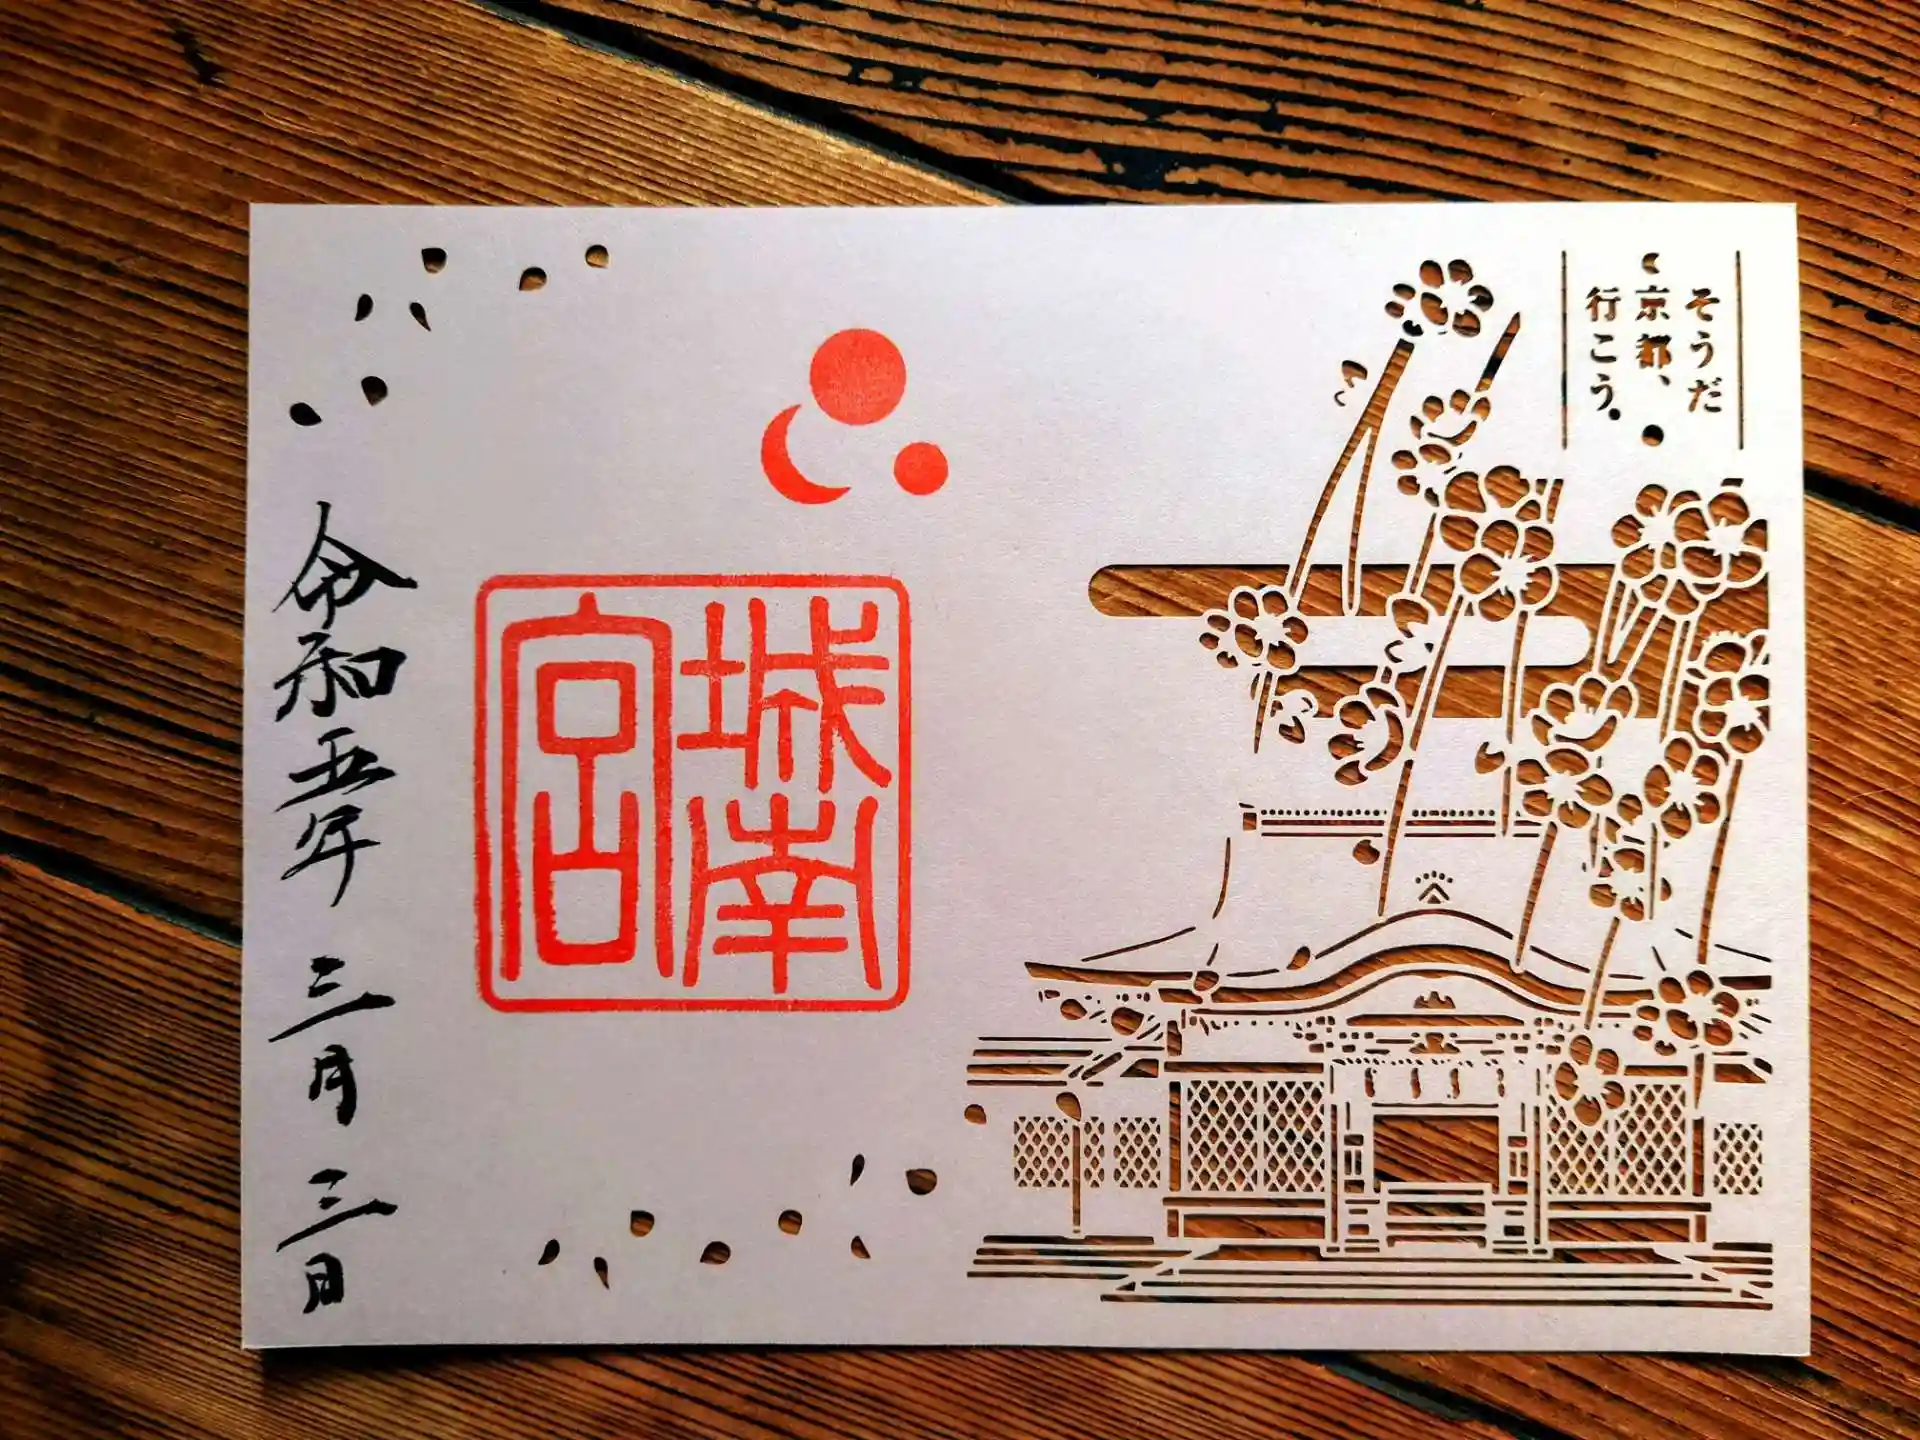 そうだ
京都、
行こう。
城南
宮
令和五年三月三日